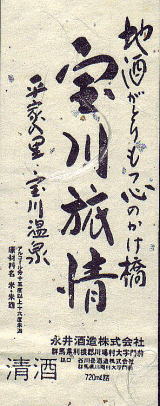 地酒がとりもつ心のかけ橋
宝川旅情
平家の里・宝川温泉
アルコール分十五度以上十六度未満
原材料名 米・米麹
清酒
永井酒造株式会社
群馬県利根郡川場村大字門前
720ml詰